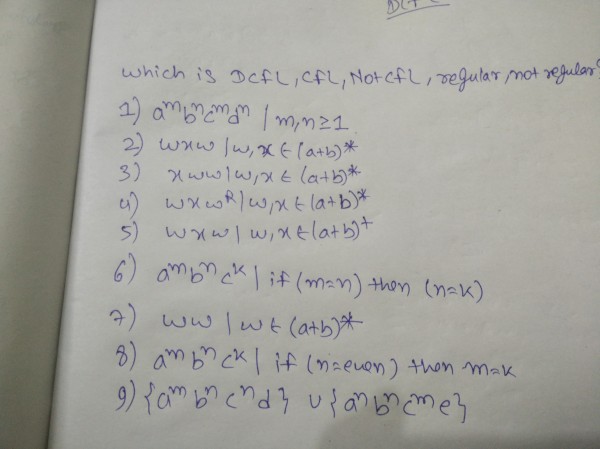 DCFL
which is DCFL, CFL, Not CFL, regular, not regular?
1) aᵐbⁿcᵐdⁿ | m,n ≥ 1
2) wxw | w,x ∈ (a+b)*
3) xww | w,x ∈ (a+b)*
4) wxwᴿ | w,x ∈ (a+b)*
5) wxw | w,x ∈ (a+b)⁺
6) aᵐbⁿcᵏ | if (m=n) then (n=k)
7) ww | w ∈ (a+b)*
8) aᵐbⁿcᵏ | if (n=even) then m=k
9) {aᵐbⁿcⁿd} ∪ {aᵐbⁿcᵐe}